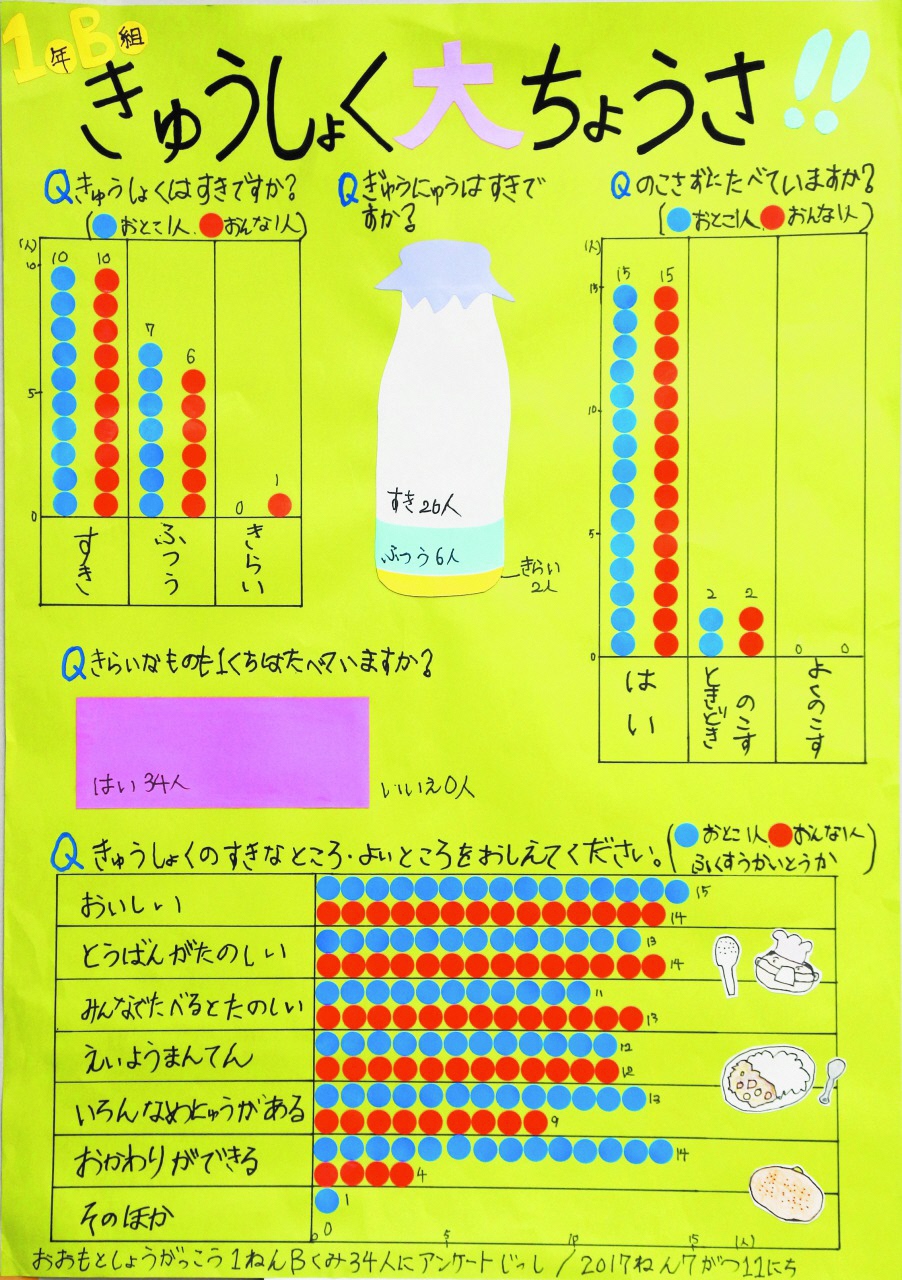 1年B組
きゅうしょく大ちょうさ!!
Qきゅうしょくはすきですか?
(おとこ1人、おんな1人)
(人)
10
5
0
10 10
7
6
0
1
すき
ふつう
きらい
Qぎゅうにゅうはすきで
すか?
すき26人
ふつう6人
きらい
2人
Qのこさずにたべていますか?
(おとこ1人、おんな1人)
(人)
15
10
5
0
15 15
2 2
0 0
はい
ときどき
のこす
よくのこす
Qきらいなものも1くちはたべていますか?
はい34人
いいえ0人
Qきゅうしょくのすきなところ・よいところをおしえてください。
(おとこ1人、おんな1人
ふくすうかいとうか)
おいしい
15
14
とうばんがたのしい
13
14
みんなでたべるとたのしい
11
13
えいようまんてん
12
12
いろんなめにゅうがある
13
9
おかわりができる
14
4
そのほか
1
0
0 5 10 15 (人)
おおもとしょうがっこう1ねんBくみ34人にアンケートじっし/2017ねん7がつ11にち